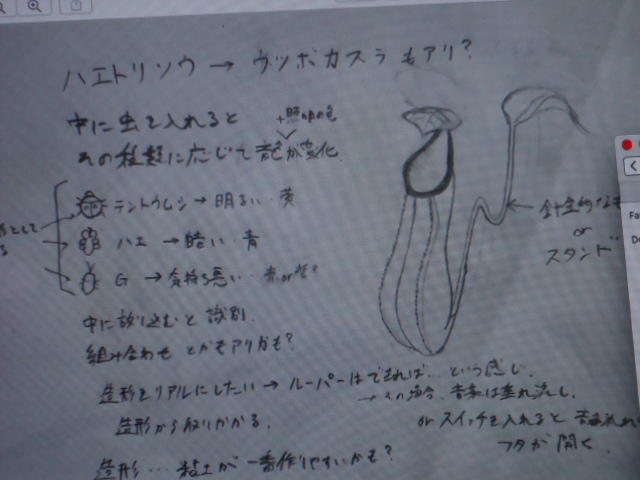 ハエトリソウ → ウツボカズラもアリ?
中に虫を入れると
+照明の色
その種類に応じて音色が変化
テントウムシ → 明るい・黄
ハエ → 暗い・青
G → 気持ち悪い・赤or
中に放り込むと識別
組み合わせとかもアリかも?
針金的な
or
スタンド
造形をリアルにしたい → ルーパーはできれば…という感じ.
→ その場合、音楽は垂れ流し.
造形から取りかかる.
or スイッチを入れると
フタが開く.
造形… 粘土が一番作りやすいかも?